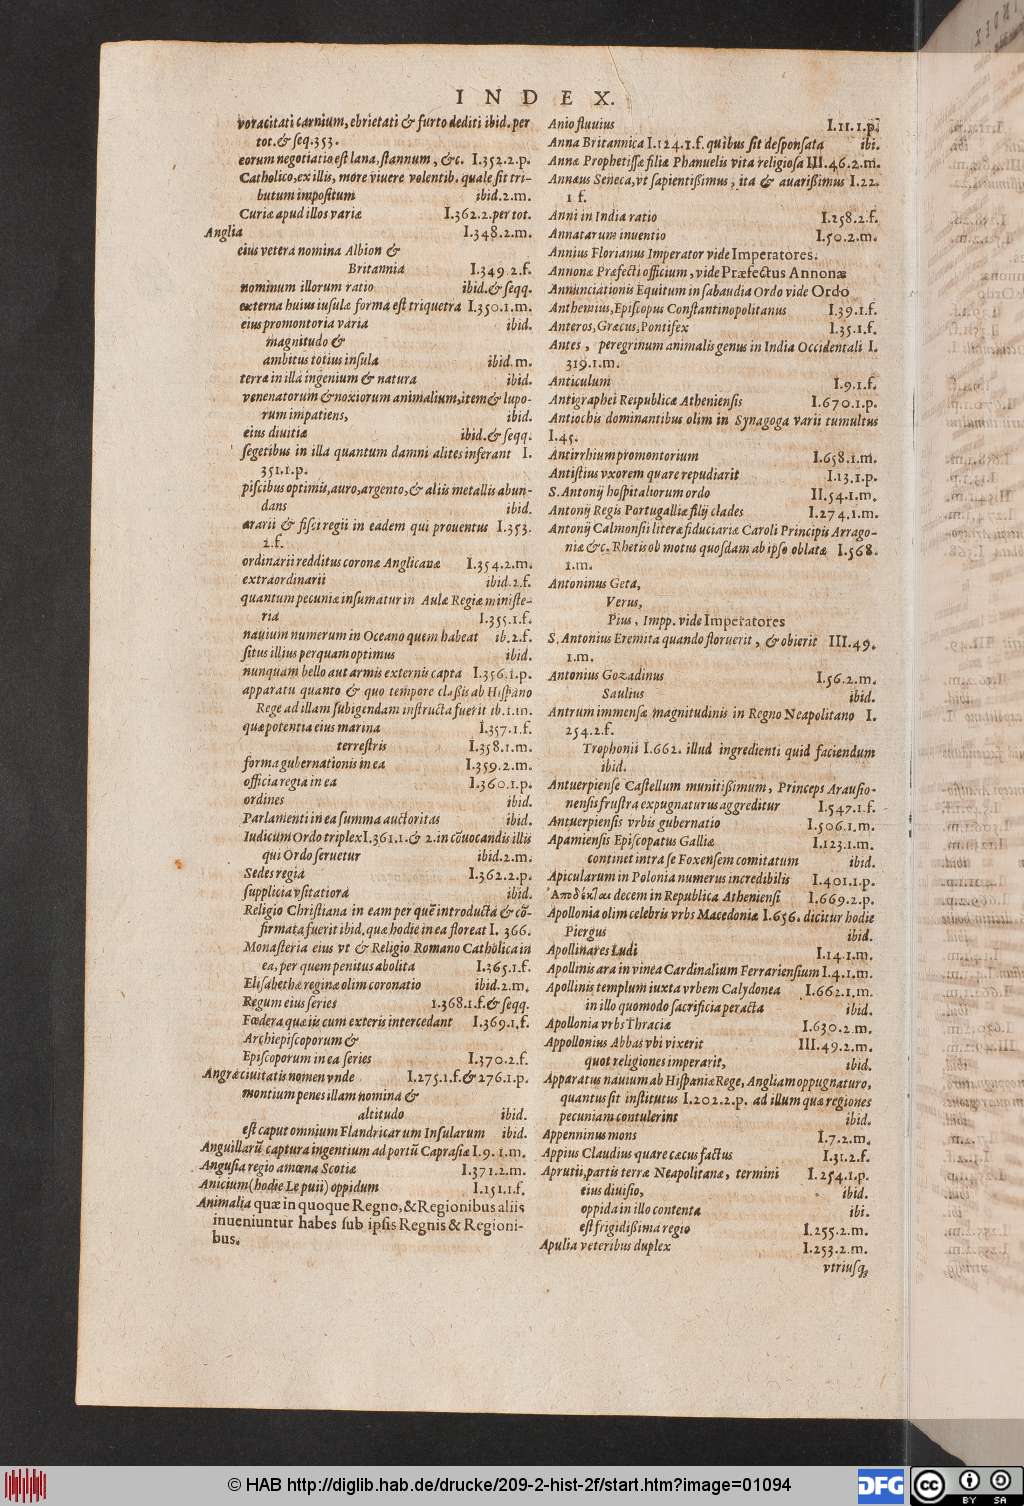 INDEX.
voracitati carnium, ebrietati & furto dediti ibid. per
tot. & seq. 353.
eorum negotiatio est lana, stannum, &c. I.352.2.p.
Catholico, ex illis, more vivere volentib. quale sit tri-
butum impositum ibid.2.m.
Curiæ apud illos variæ I.362.2.per tot.
Anglia I.348.2.m.
eius vetera nomina Albion &
Britannia I.349.2.f.
nominum illorum ratio ibid.& seqq.
externa huius iusulæ forma est triquetra I.350.1.m.
eius promontoria varia ibid.
magnitudo &
ambitus totius insula ibid.m.
terræ in illa ingenium & natura ibid.
venenatorum & noxiorum animalium, item & lupo-
rum impatiens, ibid.
eius divitiæ ibid.& seqq.
segetibus in illa quantum damni alites inferant I.
351.1.p.
piscibus optimis, auro, argento, & aliis metallis abun-
dans ibid.
ærarii & fisci regii in eadem qui proventus I.353.
2.f.
ordinarii redditus coronæ Anglicanæ I.354.2.m.
extraordinarii ibid.2.f.
quantum pecuniæ insumatur in Aulæ Regiæ ministe-
ria I.355.1.f.
nauium numerum in Oceano quem habeat ib.2.f.
situs illius perquam optimus ibid.
nunquam bello aut armis externis capta I.356.1.p.
apparatu quanto & quo tempore classis ab Hispano
Rege ad illam subigendam instructa fuerit ib.1.m.
quæ potentia eius marina I.357.1.f.
terrestris I.358.1.m.
forma gubernationis in ea I.359.2.m.
officia regia in ea I.360.1.p.
ordines ibid.
Parlamenti in ea summa auctoritas ibid.
Iudicum Ordo triplex I.361.1.& 2. in cōuocandis illis
qui Ordo seruetur ibid.2.m.
Sedes regia I.362.2.p.
supplicia vsitatiora ibid.
Religio Christiana in eam per quē introducta & cō-
firmata fuerit ibid. quæ hodie in ea floreat I. 366.
Monasteria eius vt & Religio Romano Catholica in
ea, per quem penitus abolita I.365.1.f.
Elisabethæ reginæ olim coronatio ibid.2.m.
Regum eius series 1.368.1.f.& seqq.
Fœdera quæ iis cum exteris intercedant I.369.1.f.
Archiepiscoporum &
Episcoporum in ea series I.370.2.f.
Angræ ciuitatis nomen vnde I.275.1.f.& 276.1.p.
montium penes illam nomina &
altitudo ibid.
est caput omnium Flandricarum Insularum ibid.
Anguillarū captura ingentium ad portū Caprasiæ I.9.1.m.
Angusia regio amœna Scotiæ I.371.2.m.
Anicium (hodie Le puii) oppidum I.151.1.f.
Animalia quæ in quoque Regno, & Regionibus aliis
inueniuntur habes sub ipsis Regnis & Regioni-
bus.
Anio fluuius I.11.1.p.
Anna Britannica I.124.1.f. quibus sit desponsata ibi.
Annæ Prophetissæ filiæ Phanuelis vita religiosa III.46.2.m.
Annæus Seneca, vt sapientissimus, ita & auarissimus I.22.
1 f.
Anni in India ratio I.258.2.f.
Annatarum inuentio I.50.2.m.
Annius Florianus Imperator vide Imperatores.
Annonæ Præfecti officium, vide Præfectus Annonæ
Annunciationis Equitum in sabaudia Ordo vide Ordo
Anthemius, Episcopus Constantinopolitanus I.39.1.f.
Anteros, Græcus, Pontifex I.35.1.f.
Antes, peregrinum animalis genus in India Occidentali I.
319.1.m.
Anticulum I.9.1.f.
Antigraphei Reipublicæ Atheniensis I.670.1.p.
Antiochis dominantibus olim in Synagoga varii tumultus
I.45.
Antirrhium promontorium I.658.1.m.
Antistius vxorem quare repudiarit I.13.1.p.
S. Antonij hospitaliorum ordo II.54.1.m.
Antonij Regis Portugalliæ filij clades I.274.1.m.
Antonij Calmonsii literæ fiduciariæ Caroli Principis Arrago-
niæ &c. Rhetis ob motus quosdam ab ipso oblatæ I.568.
1.m.
Antoninus Geta,
Verus,
Pius, Impp. vide Imperatores
S. Antonius Eremita quando floruerit, & obierit III.49.
1.m.
Antonius Gozadinus I.56.2.m.
Saulius ibid.
Antrum immensæ magnitudinis in Regno Neapolitano I.
254.2.f.
Trophonii I.662. illud ingredienti quid faciendum
ibid.
Antuerpiense Castellum munitissimum, Princeps Arausio-
nensis frustra expugnaturus aggreditur I.547.1.f.
Antuerpiensis vrbis gubernatio I.506.1.m.
Apamiensis Episcopatus Galliæ I.123.1.m.
continet intra se Foxensem comitatum ibid.
Apicularum in Polonia numerus incredibilis I.401.1.p.
Ἀποδέκται decem in Republica Atheniensi I.669.2.p.
Apollonia olim celebris vrbs Macedoniæ I.656. dicitur hodie
Piergus ibid.
Apollinares Ludi I.14.1.m.
Apollinis ara in vinea Cardinalium Ferrariensium I.4.1.m.
Apollinis templum iuxta vrbem Calydonea I.662.1.m.
in illo quomodo sacrificia peracta ibid.
Apollonia vrbs Thraciæ I.630.2.m.
Appollonius Abbas vbi vixerit III.49.2.m.
quot religiones imperarit, ibid.
Apparatus nauium ab Hispaniæ Rege, Angliam oppugnaturo,
quantus sit institutus I.202.2.p. ad illum quæ regiones
pecuniam contulerint ibid.
Appenninus mons I.7.2.m.
Appius Claudius quare cæcus factus I.31.2.f.
Aprutii, partis terræ Neapolitanæ, termini I.254.1.p.
eius diuisio, ibid.
oppida in illo contenta ibi.
est frigidissima regio I.255.2.m.
Apulia veteribus duplex I.253.2.m.
vtriusq;
© HAB http://diglib.hab.de/drucke/209-2-hist-2f/start.htm?image=01094
DFG
cc
BY SA